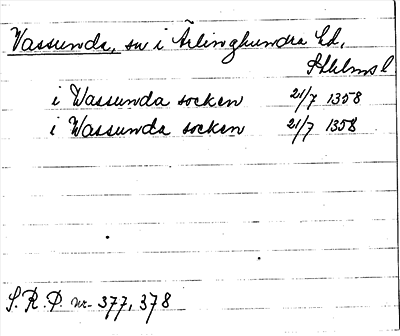 Vassunda, sn i Ärlinghundra hd,
Sthlms l
i Wassunda socken 21/7 1358
i Wassunda socken 21/7 1358
S. R. P. nr. 377, 378